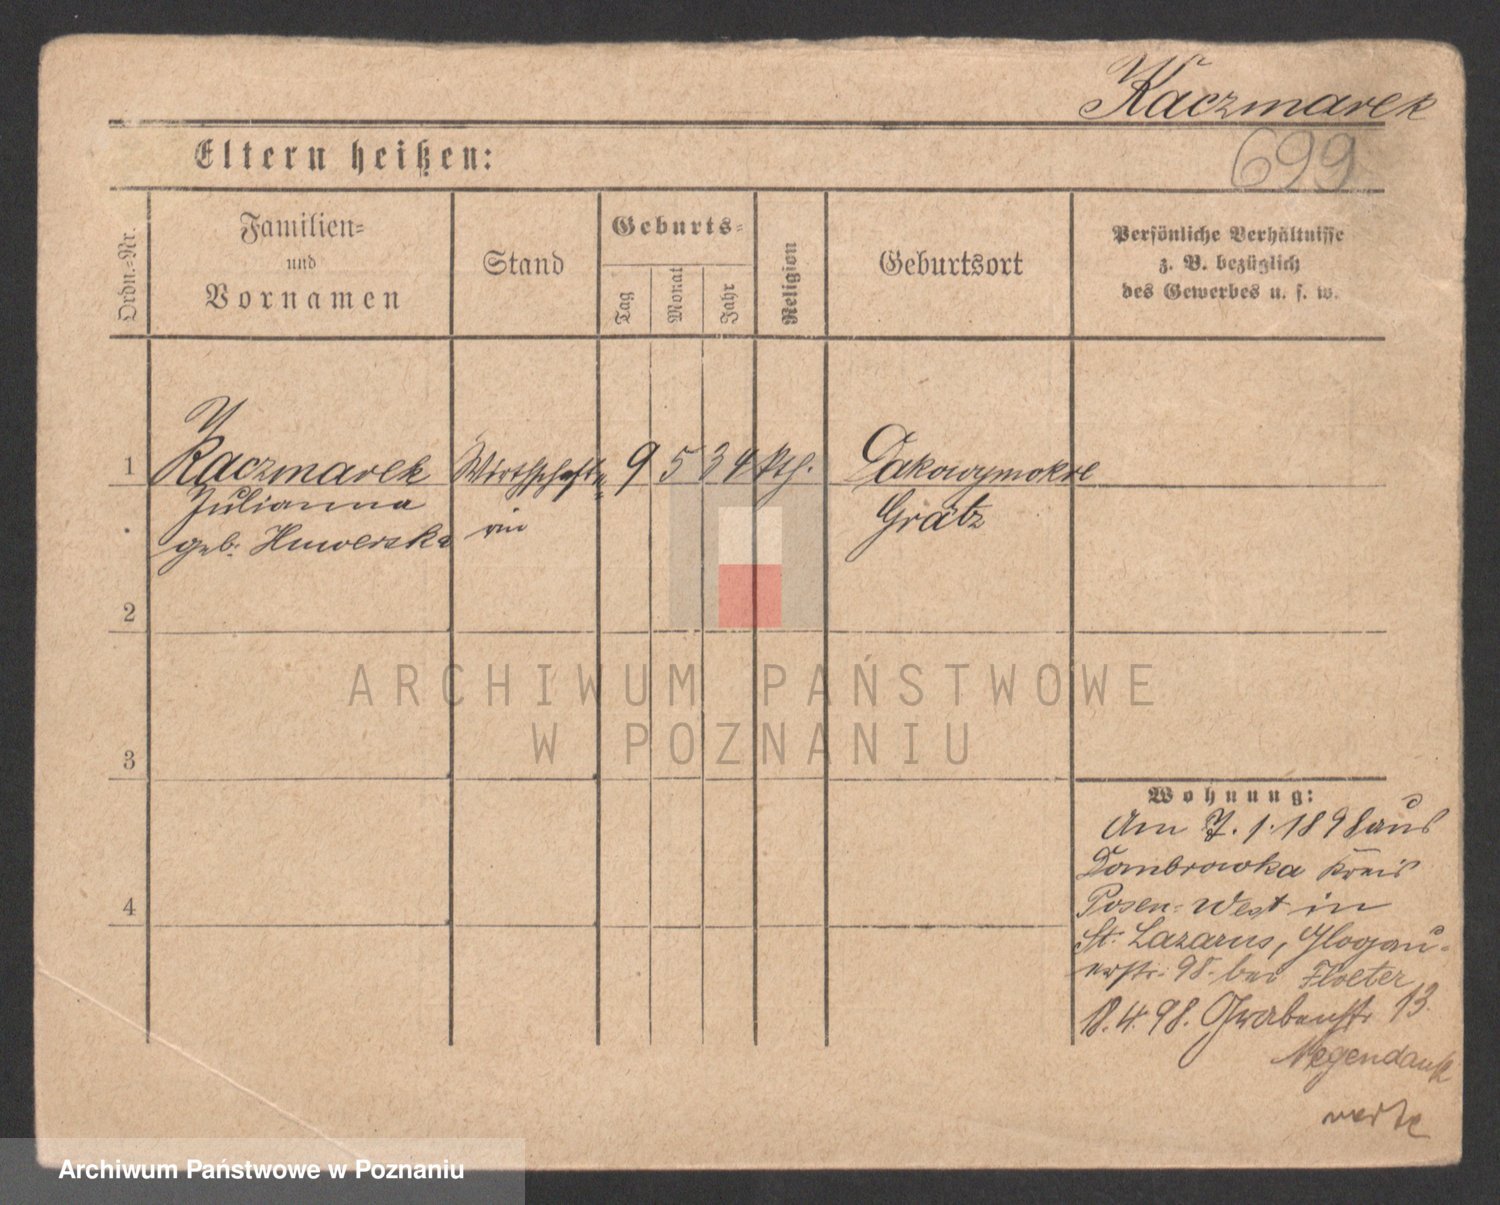 Kaczmarek
699
Eltern heißen:
Ordn.-Nr.
Familien-
und
Vornamen
Stand
Geburts-
Tag
Monat
Jahr
Religion
Geburtsort
Persönliche Verhältnisse
z. B. bezüglich
des Gewerbes u. s. w.
1 Kaczmarek Wirthschafte- 9 5 34 kth. Dakowymokre
Julianna rin Grätz
geb. Huwerska
2
3
4
ARCHIWUM PAŃSTWOWE
W POZNANIU
Wohnung:
Am 7. 1. 1898 aus
Dombrowka Kreis
Posen-West in
St. Lazarus, Glogau-
erstr. 98. bei Floeter
18. 4. 98. Grabenstr 13.
Negendank
Archiwum Państwowe w Poznaniu